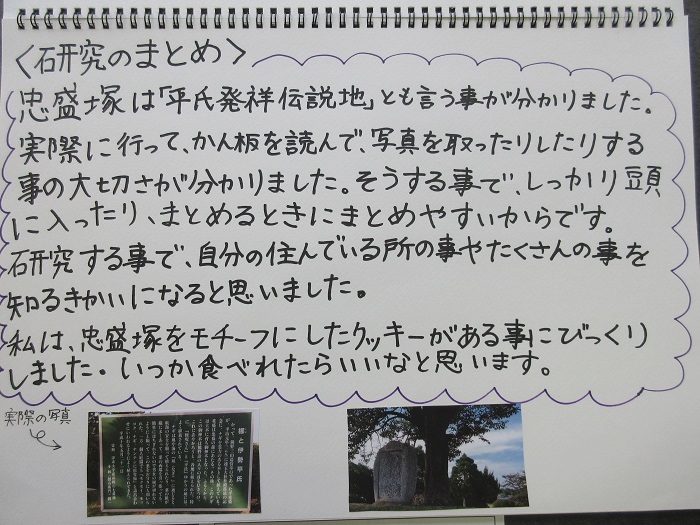 〈研究のまとめ〉
忠盛塚は「平氏発祥伝説地」とも言う事が分かりました。
実際に行って、かん板を読んで、写真を取ったりしたりする
事の大切さが分かりました。そうする事で、しっかり頭
に入ったり、まとめるときにまとめやすいからです。
研究する事で、自分の住んでいる所の事やたくさんの事を
知るきかいになると思いました。
私は、忠盛塚をモチーフにしたクッキーがある事にびっくり
しました。いつか食べれたらいいなと思います。
実際の写真